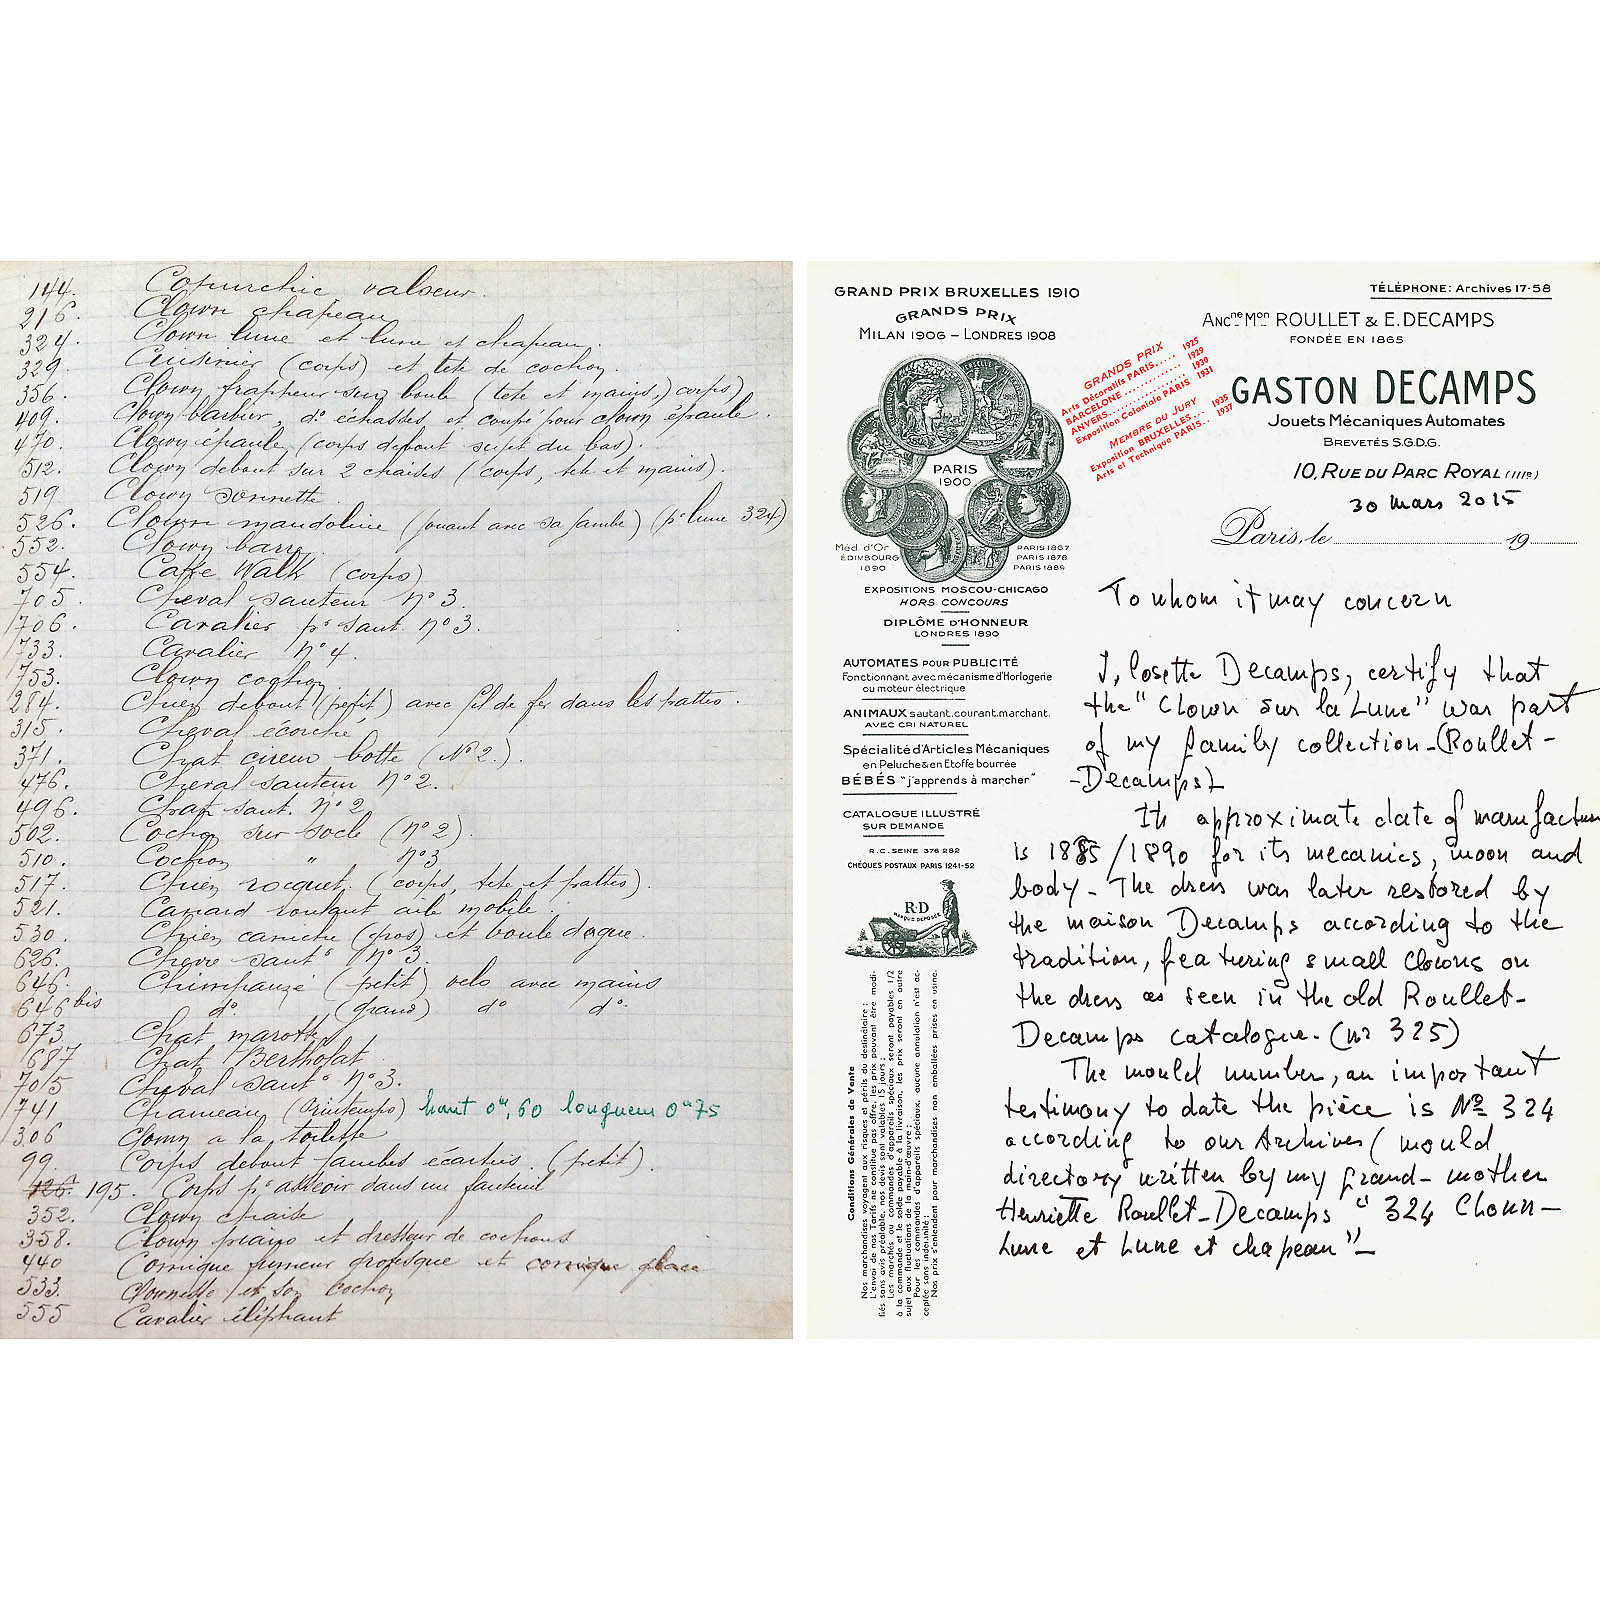 144. Copurchic valseur.
216. Clown chapeau
324. Clown lune et lune et chapeau.
329. Cuisinier (corps) et tete de cochon.
356. Clown frappeur sur boule (tete et mains,) corps)
409. Clown barbier, d° échasses et coupé pour clown épaule.
470. Clown épaule (corps debout sujet du bas).
512. Clown debout sur 2 chaises (corps, tete et mains).
519. Clown sonnette
526. Clown mandoline (jouant avec sa jambe) (pr lune 324)
552. Clown
554. Cake Walk (corps)
705. Cheval sauteur N° 3.
706. Cavalier pr saut. N° 3.
733. Cavalier N° 4.
753. Clown cochon
284. Chien debout (petit) avec fil de fer dans les pattes.
315. Cheval écorché
371. Chat cireur botte (N° 2.).
476. Cheval sauteur N° 2.
496. Chat saut. N° 2
502. Cochon sur socle (N° 2).
510. Cochon " N° 3
517. Chien roquet. (corps, tete et pattes).
521. Canard roulant aile mobile.
530. Chien caniche (gros) et boule dogue.
626. Chevre saut° N° 3.
646. Chimpanzé (petit) velo avec mains
646 bis d°. (grand) d° d°.
673 Chat marotte
687 Chat Bertholat
705 Cheval saut° N° 3.
741 Chameau (Printemps) haut 0m,60 longueur 0m75
306. Clown a la toilette
99. Corps debout jambes écartées. (petit).
126. 195. Corps pr asseoir dans un fauteuil
352. Clown chaise
358. Clown piano et dresseur de cochons
440 Comique fumeur grotesque et comique glace
533. Clownesse et son cochon
555 Cavalier éléphant
GRAND PRIX BRUXELLES 1910
GRANDS PRIX
MILAN 1906 - LONDRES 1908
PARIS
1900
Méd. d'Or
ÉDIMBOURG
1890
PARIS 1867
PARIS 1878
PARIS 1889
EXPOSITIONS MOSCOU-CHICAGO
HORS CONCOURS
DIPLÔME D'HONNEUR
LONDRES 1890
AUTOMATES POUR PUBLICITÉ
Fonctionnant avec mécanisme d'Horlogerie
ou moteur électrique
ANIMAUX sautant.courant.marchant.
AVEC CRI NATUREL
Spécialité d'Articles Mécaniques
en Peluche & en Etoffe bourrée
BÉBÉS "j'apprends à marcher"
CATALOGUE ILLUSTRÉ
SUR DEMANDE
R.C. SEINE 376 282
CHÈQUES POSTAUX PARIS 1241-52
R.D
MARQUE DÉPOSÉE
Conditions Générales de Vente
Nos marchandises voyagent aux risques et périls du destinataire :
L'envoi de nos Tarifs ne constitue pas offre, les prix pouvant être modi-
fiés sans avis préalable, nos devis sont valables 15 jours ;
Les marchés ou commandes d'appareils spéciaux seront payables 1/2
à la commande et le solde payable à la livraison, les prix seront en outre
sujet aux fluctuations de la main-d'œuvre ;
Pour les commandes d'appareils spéciaux, aucune annulation n'est ac-
ceptée sans indemnité ;
Nos prix s'entendent pour marchandises non emballées prises en usine.
GRANDS PRIX
Arts Décoratifs PARIS..... 1925
BARCELONE............ 1929
ANVERS............... 1930
Exposition Coloniale PARIS 1931
MEMBRE DU JURY
Exposition BRUXELLES... 1935
Arts et Technique PARIS.. 1937
TÉLÉPHONE: Archives 17-58
ANCNE MON ROULLET & E. DECAMPS
FONDÉE EN 1865
GASTON DECAMPS
Jouets Mécaniques Automates
BREVETÉS S.G.D.G.
10, RUE DU PARC ROYAL (IIIe)
30 mars 2015
Paris, le 19
To whom it may concern
I, Cosette Decamps, certify that
the "Clown sur la Lune" was part
of my family collection-(Roullet-
-Decamps)
Its approximate date of manufacture
is 1885/1890 for its mecanics, moon and
body - The dress was later restored by
the maison Decamps according to the
tradition, featuring small clowns on
the dress as seen in the old Roullet-
Decamps catalogue. (nr 325)
The mould number, an important
testimony to date the pièce is No 324
according to our Archives (mould
directory written by my grand-mother
Henriette Roullet-Decamps " 324 Clown-
Lune et Lune et chapeau"-